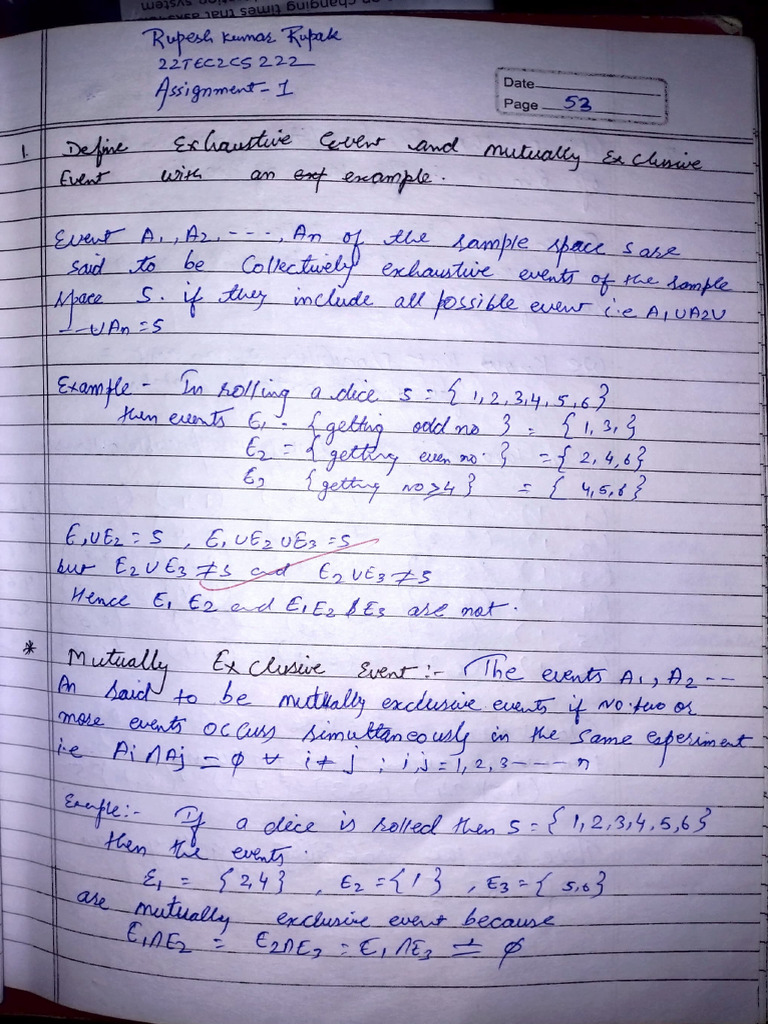 on changing times that asks for
education system
Rupesh Kumar Rupak
22TEC2CS222
Assignment-1
Date
Page 53
1. Define Exhaustive Event and mutually Exclusive
Event with an exf example.
Event A1, A2, ----, An of the sample space s are
said to be Collectively exhaustive events of the sample
space S. if they include all possible event i.e A1UA2U
--- UAn = S
Example - In rolling a dice S = { 1, 2, 3, 4, 5, 6 }
then events E1 = { getting odd no } = { 1, 3, }
E2 = { getting even no. } = { 2, 4, 6 }
E3 { getting no ≥ 4 } = { 4, 5, 6 }
E1UE2 = S, E1UE2UE3 = S
but E2UE3 ≠ S and E2UE3 ≠ S
Hence E1 E2 and E1E2 & E3 are not.
* Mutually Exclusive Event :- The events A1, A2 --
An said to be mutually exclusive events if no two or
more events occurs simultaneously in the same experiment
i.e Ai ∩ Aj = φ ∀ i ≠ j ; i,j = 1, 2, 3 ---- n
Example:- If a dice is rolled then S = { 1, 2, 3, 4, 5, 6 }
then the events.
E1 = { 2, 4 }, E2 = { 1 }, E3 = { 5, 6 }
are mutually exclusive event because
E1∩E2 = E2∩E3 = E1∩E3 = φ